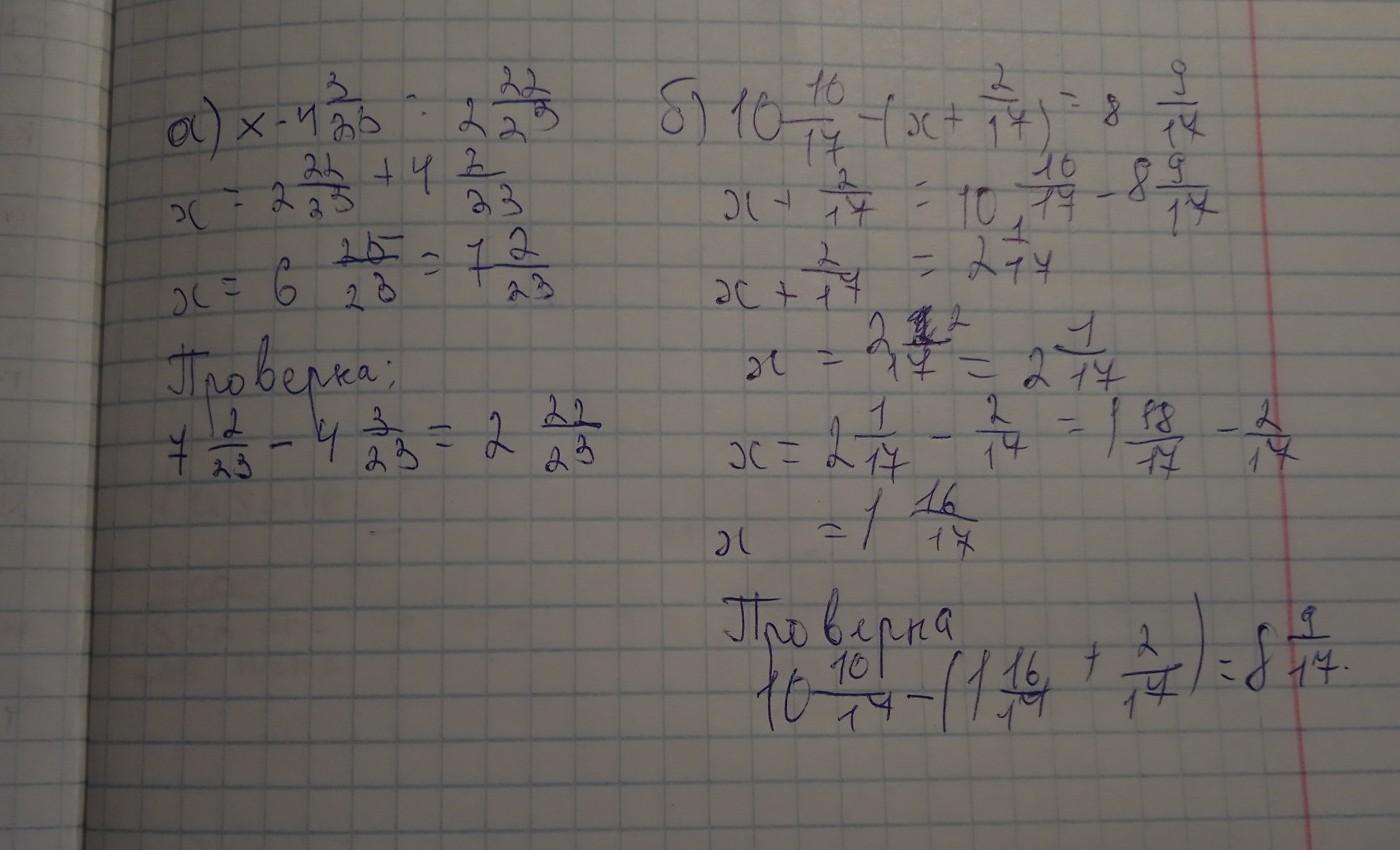 а) x - 4 3/23 = 2 22/23
x = 2 22/23 + 4 3/23
x = 6 25/23 = 7 2/23
Проверка:
7 2/23 - 4 3/23 = 2 22/23
б) 10 10/17 - (x + 2/17) = 8 9/17
x + 2/17 = 10 10/17 - 8 9/17
x + 2/17 = 2 1/17
x = 2 2/17 = 2 1/17
x = 2 1/17 - 2/17 = 1 18/17 - 2/17
x = 1 16/17
Проверка
10 10/17 - (1 16/17 + 2/17) = 8 9/17.